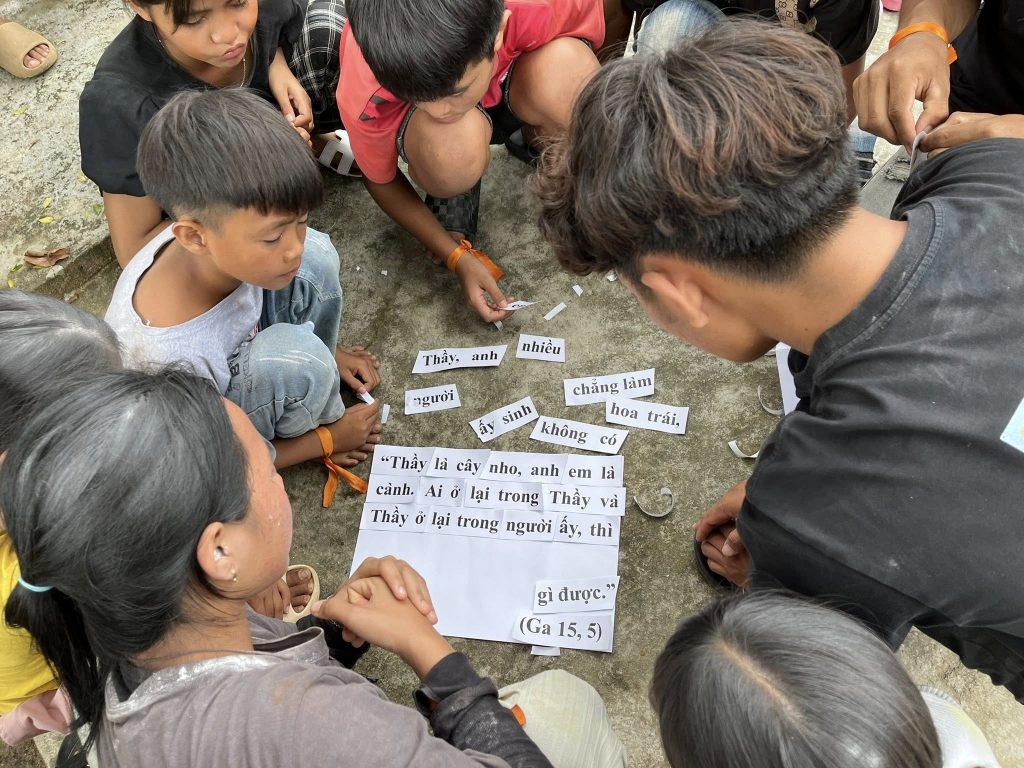 Thầy, anh
nhiều
người
chẳng làm
ấy sinh
hoa trái,
không có
“Thầy là cây nho, anh em là
cành. Ai ở lại trong Thầy và
Thầy ở lại trong người ấy, thì
gì được.”
(Ga 15, 5)